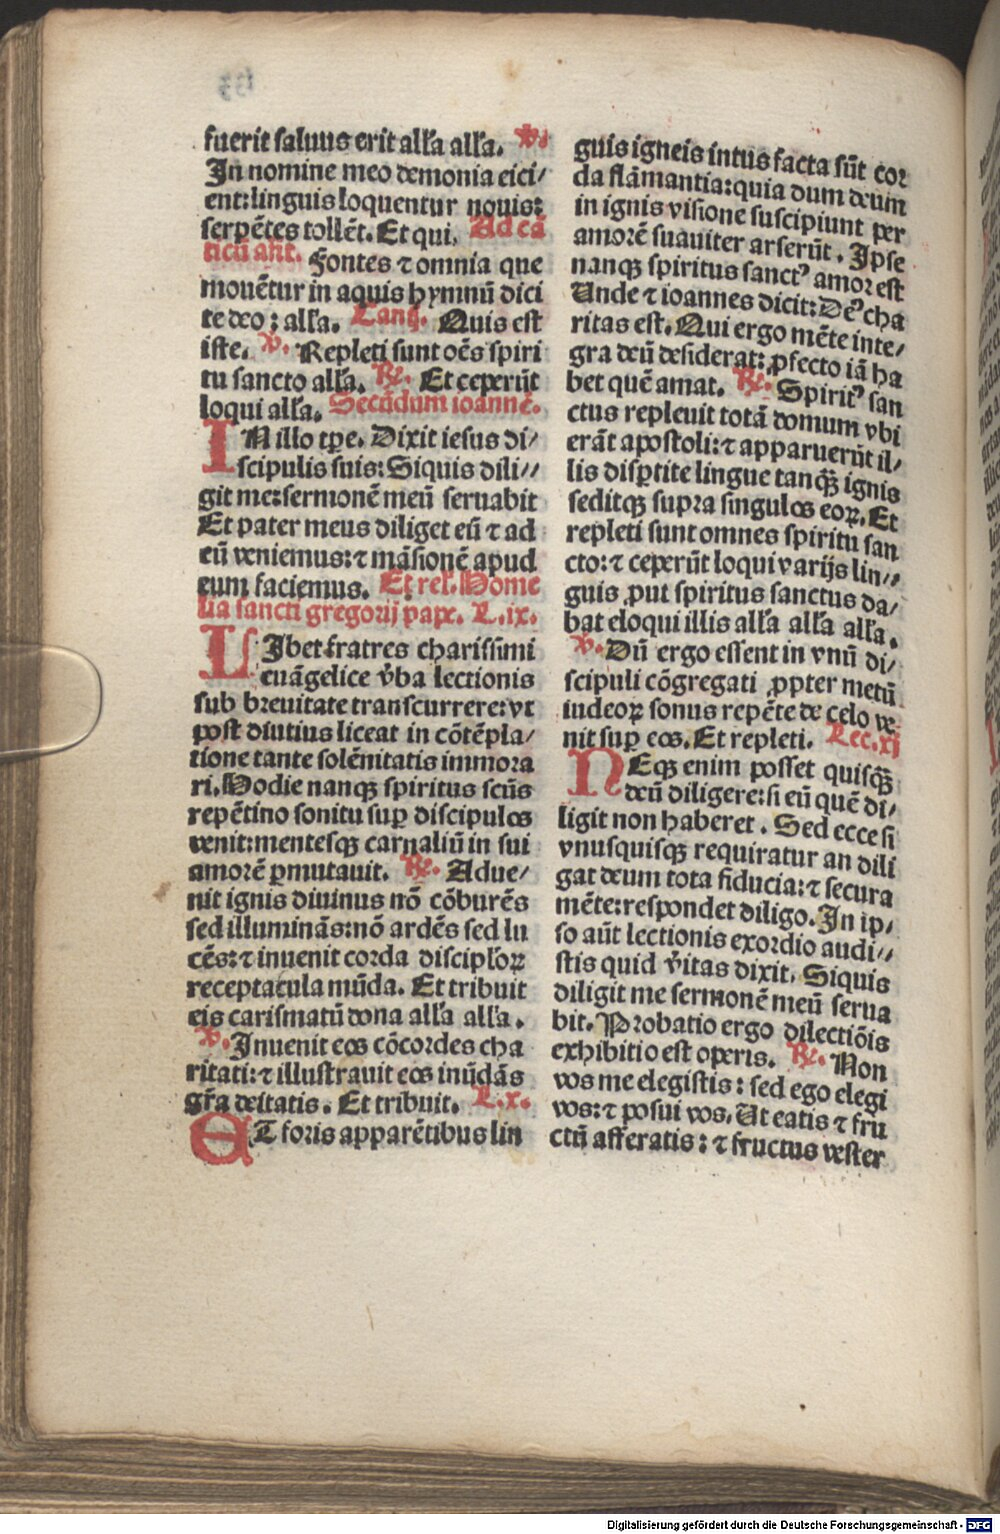 fuerit saluus erit all'a all'a. ℣.
In nomine meo demonia eici/
ent: linguis loquentur nouis:
serpētes tollēt. Et qui. Ad cā
ticū añt. Fontes ⁊ omnia que
mouētur in aquis hymnū dici
te deo: all'a. Tanq̄. Quis est
iste. ℣. Repleti sunt oēs spiri
tu sancto all'a. ℟. Et ceperūt
loqui all'a. Secūdum ioannē.
IN illo tꝑe. Dixit iesus di/
scipulis suis: Siquis dili//
git me: sermonē meū seruabit
Et pater meus diliget eū ⁊ ad
eū veniemus: ⁊ māsionē apud
eum faciemus. Et rel. Home
lia sancti gregorij pape. L.ix.
LIbet fratres charissimi
euāgelice v̓ba lectionis
sub breuitate transcurrere: vt
post diutius liceat in cōtēpla/
tione tante solēnitatis immora
ri. Hodie nanqꝫ spiritus scūs
repētino sonitu suꝑ discipulos
venit: mentesqꝫ carnaliū in sui
amorē ꝑmutauit. ℟. Adue/
nit ignis diuinus nō cōburēs
sed illuminās: nō ardēs sed lu
cēs: ⁊ inuenit corda discipl'oꝝ
receptacula mūda. Et tribuit
eis carismatū dona all'a all'a.
℣. Inuenit eos cōcordes cha
ritati: ⁊ illustrauit eos inūdās
gr̄a deitatis. Et tribuit. L.x.
ET foris apparētibus lin
guis igneis intus facta sūt cor
da flāmantia: quia dum deum
in ignis visione suscipiunt per
amorē suauiter arserūt. Ipse
nanqꝫ spiritus sanctꝰ amor est
Unde ⁊ ioannes dicit: Deꝰ cha
ritas est. Qui ergo mēte inte/
gra deū desiderat: ꝓfecto iā ha
bet quē amat. ℟. Spiritꝰ san
ctus repleuit totā domum vbi
erāt apostoli: ⁊ apparuerūt il/
lis disꝑtite lingue tanqꝫ̄ ignis
seditqꝫ supra singulos eoꝝ. Et
repleti sunt omnes spiritu san
cto: ⁊ ceperūt loqui varijs lin//
guis ꝓut spiritus sanctus da/
bat eloqui illis all'a all'a all'a.
℣. Dū ergo essent in vnū di/
scipuli cōgregati ꝓpter metū
iudeoꝝ sonus repēte de celo ve
nit suꝑ eos. Et repleti. Lec.xj
NEqꝫ enim posset quisqꝫ̄
deū diligere: si eū quē di/
ligit non haberet. Sed ecce si
vnusquisqꝫ requiratur an dili
gat deum tota fiducia: ⁊ secura
mēte: respondet diligo. In ip/
so aūt lectionis exordio audi//
stis quid v̓itas dixit. Siquis
diligit me sermonē meū serua
bit. Probatio ergo dilectiōis
exhibitio est operis. ℟. Non
vos me elegistis: sed ego elegi
vos: ⁊ posui vos. Ut eatis ⁊ fru
ctū afferatis: ⁊ fructus vester
Digitalisierung gefördert durch die Deutsche Forschungsgemeinschaft - DFG